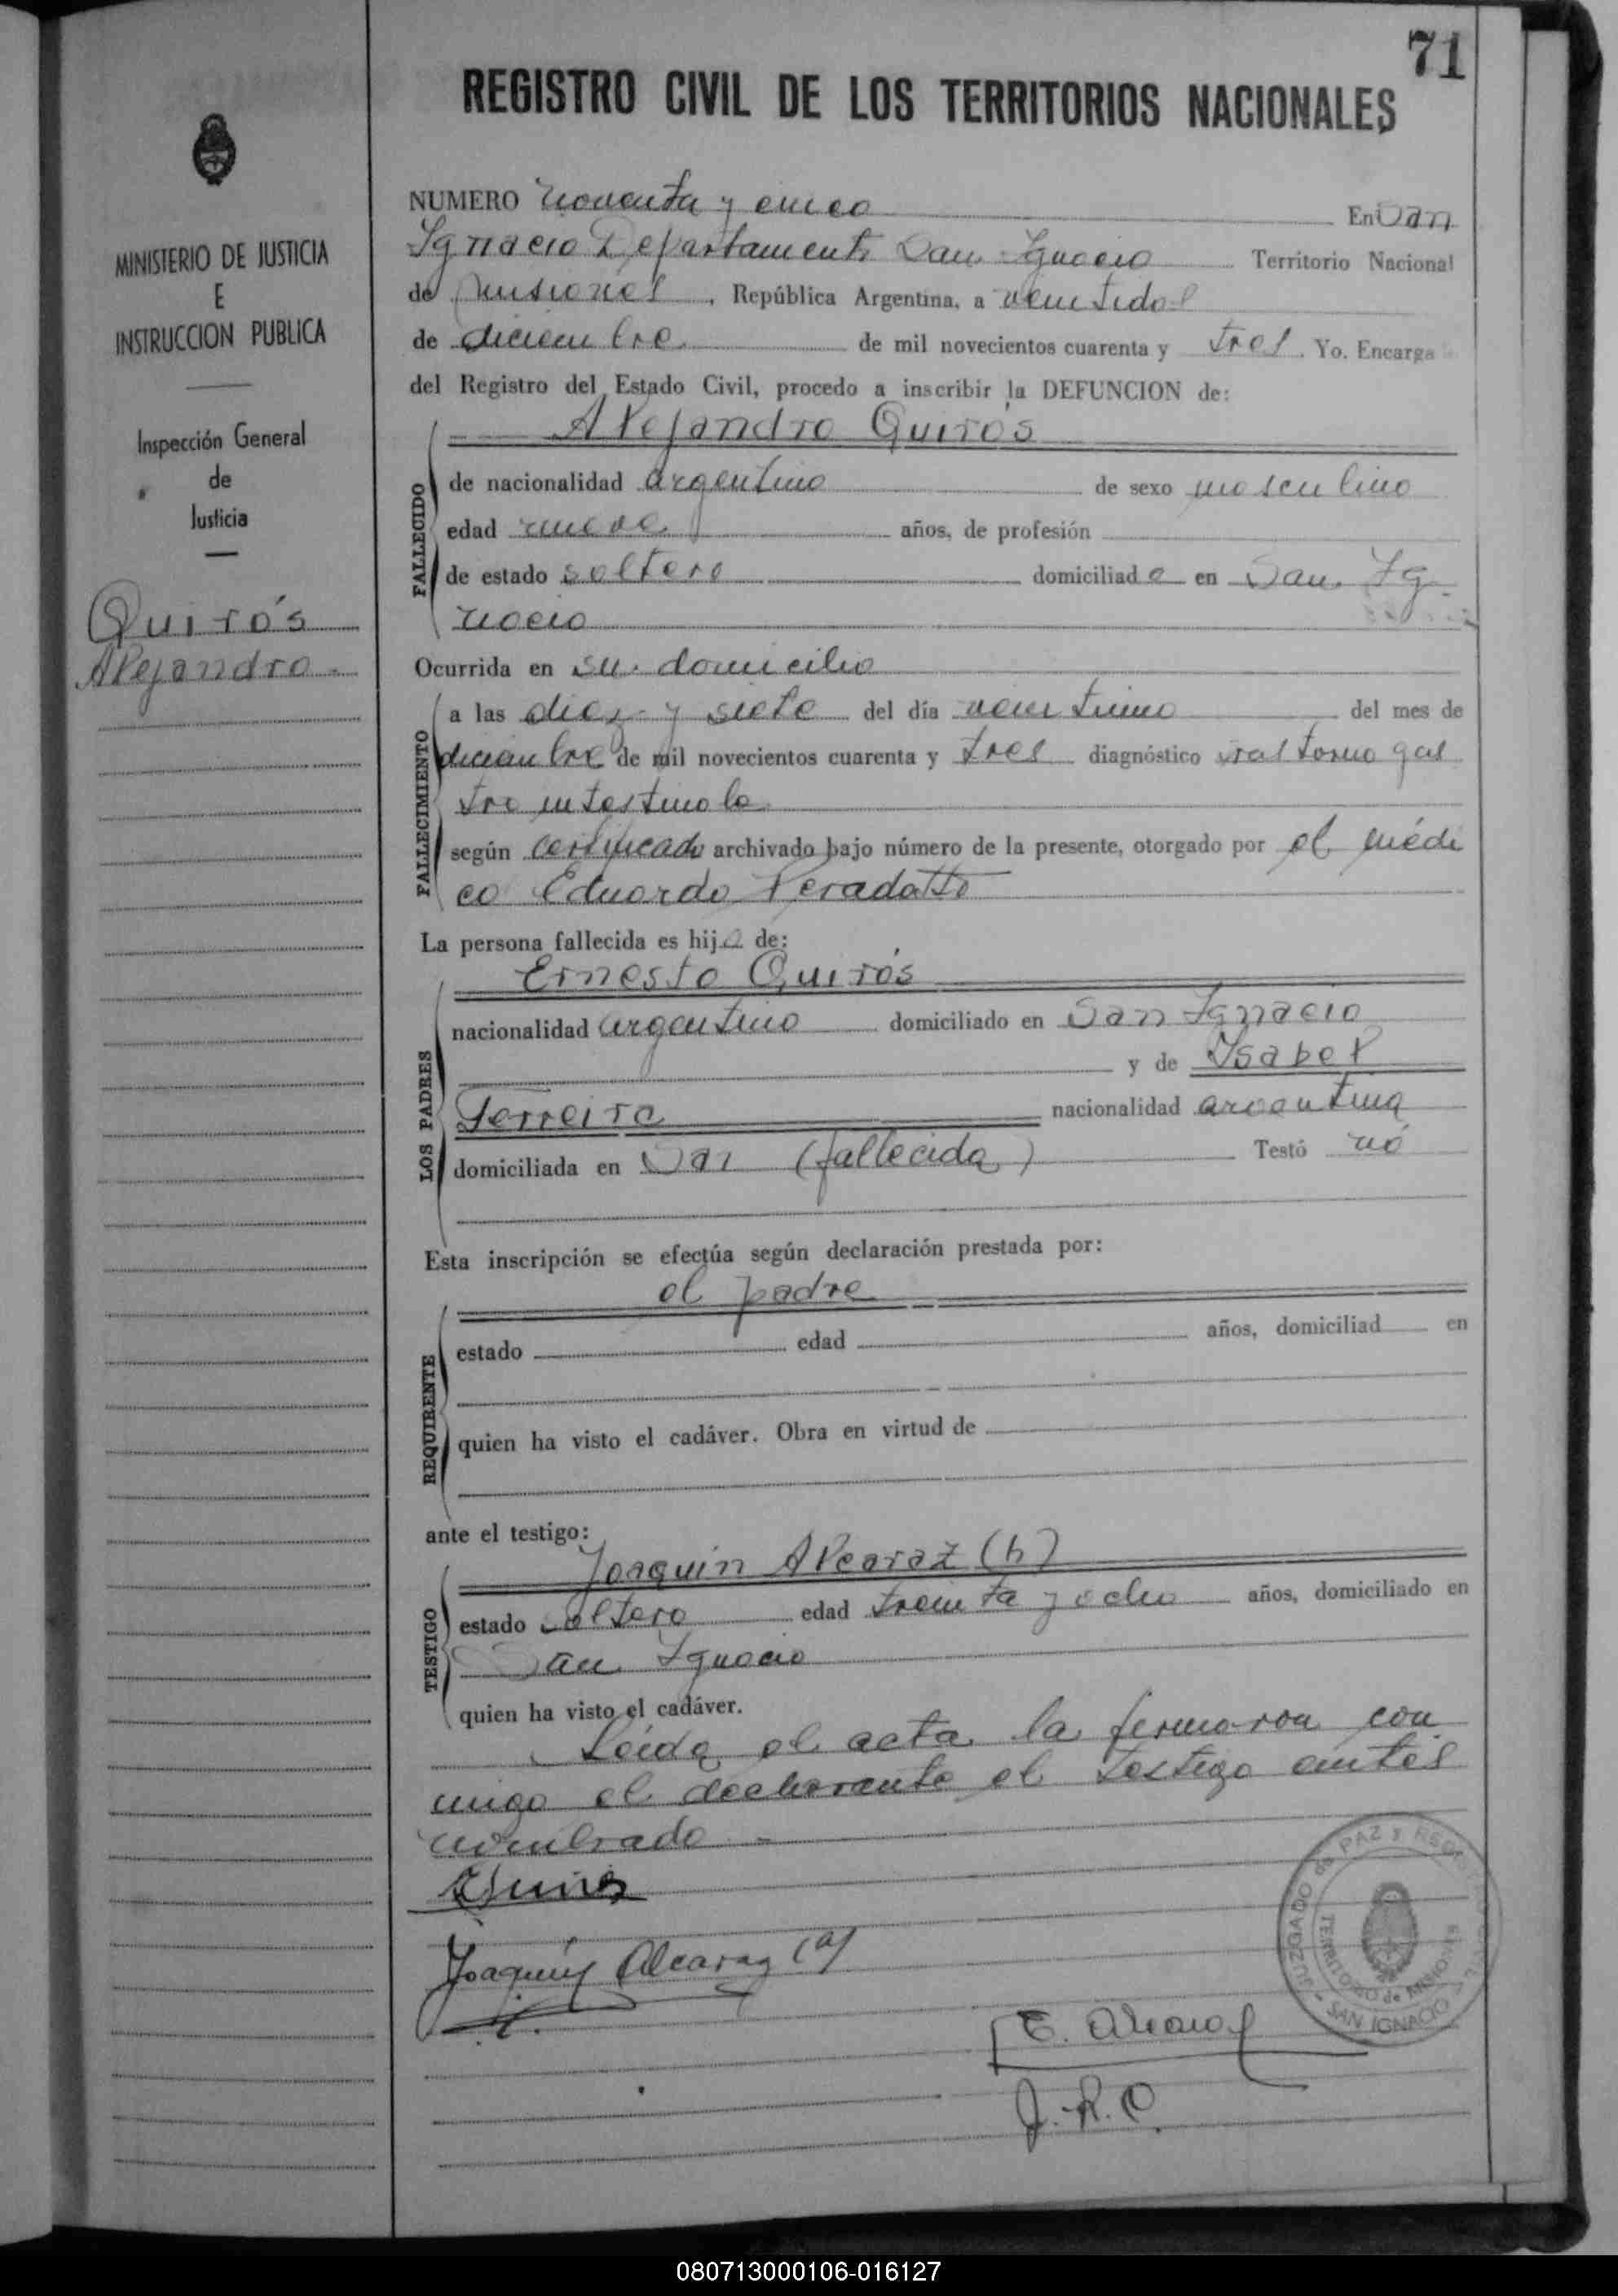 71
REGISTRO CIVIL DE LOS TERRITORIOS NACIONALES
MINISTERIO DE JUSTICIA
E
INSTRUCCION PUBLICA
Inspección General
de
Justicia
Quirós
Alejandro
NUMERO noventa y cinco En San
Ignacio Departamento San Ignacio Territorio Nacional
de Misiones, República Argentina, a veintidos
de diciembre de mil novecientos cuarenta y tres. Yo, Encarga
del Registro del Estado Civil, procedo a inscribir la DEFUNCION de:
Alejandro Quirós
FALLECIDO
de nacionalidad argentino de sexo masculino
edad nueve años, de profesión
de estado soltero domiciliado en San Ig
nacio
Ocurrida en su domicilio
FALLECIMIENTO
a las diez y siete del día veintiuno del mes de
diciembre de mil novecientos cuarenta y tres diagnóstico trastorno gas
tro intestinale
según certificado archivado bajo número de la presente, otorgado por el médi
co Eduardo Peradotto
La persona fallecida es hijo de:
Ernesto Quirós
LOS PADRES
nacionalidad argentino domiciliado en San Ignacio
y de Isabel
Ferreira nacionalidad argentina
domiciliada en San (fallecida) Testó nó
Esta inscripción se efectúa según declaración prestada por:
el padre
REQUIRENTE
estado edad años, domiciliad en
quien ha visto el cadáver. Obra en virtud de
ante el testigo:
Joaquin Alcaraz (h)
TESTIGO
estado soltero edad treinta y ocho años, domiciliado en
San Ignacio
quien ha visto el cadáver.
Leida el acta la firmaron con
migo el declarante el testigo antes
nombrado
Joaquin Alcaraz (h)
JUZGADO de PAZ y REGISTRO CIVIL
TERRITORIO de MISIONES
SAN IGNACIO
J. R. C.
080713000106-016127